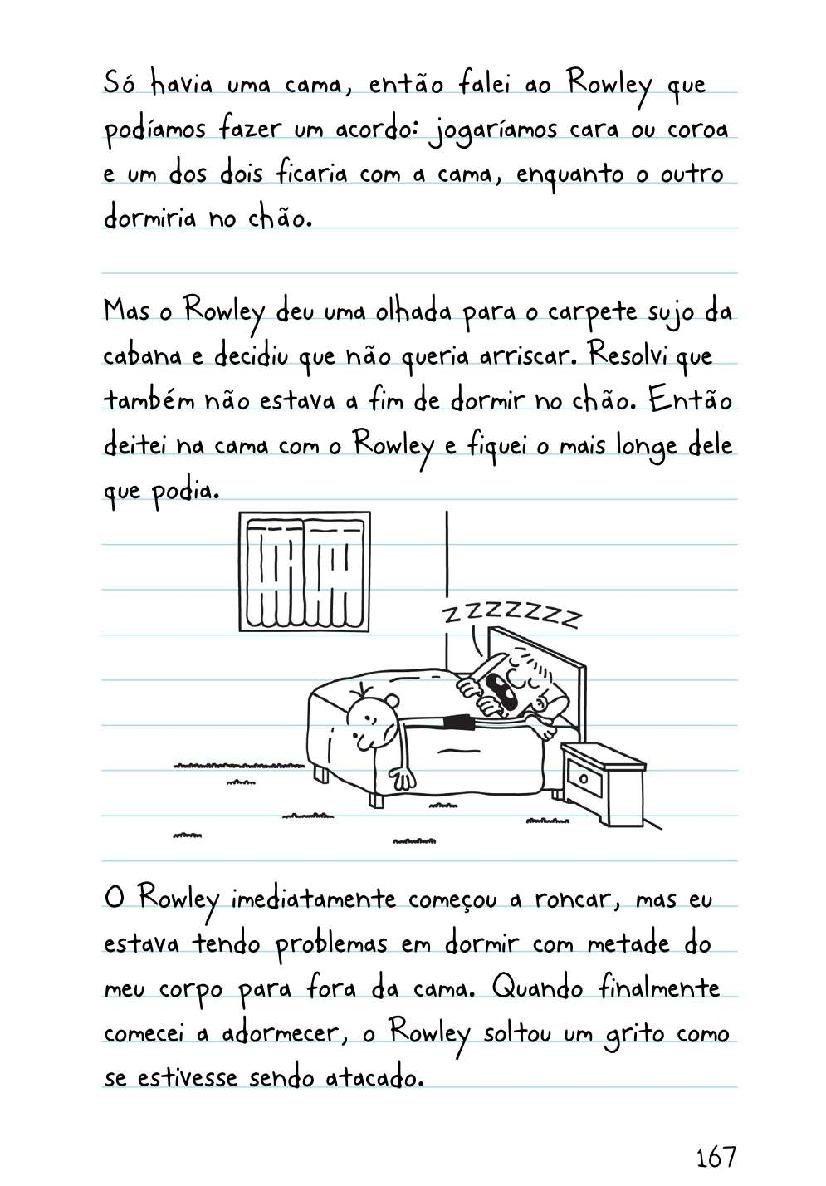 Só havia uma cama, então falei ao Rowley que
podíamos fazer um acordo: jogaríamos cara ou coroa
e um dos dois ficaria com a cama, enquanto o outro
dormiria no chão.
Mas o Rowley deu uma olhada para o carpete sujo da
cabana e decidiu que não queria arriscar. Resolvi que
também não estava a fim de dormir no chão. Então
deitei na cama com o Rowley e fiquei o mais longe dele
que podia.
ZZZZZZZ
O Rowley imediatamente começou a roncar, mas eu
estava tendo problemas em dormir com metade do
meu corpo para fora da cama. Quando finalmente
comecei a adormecer, o Rowley soltou um grito como
se estivesse sendo atacado.
167